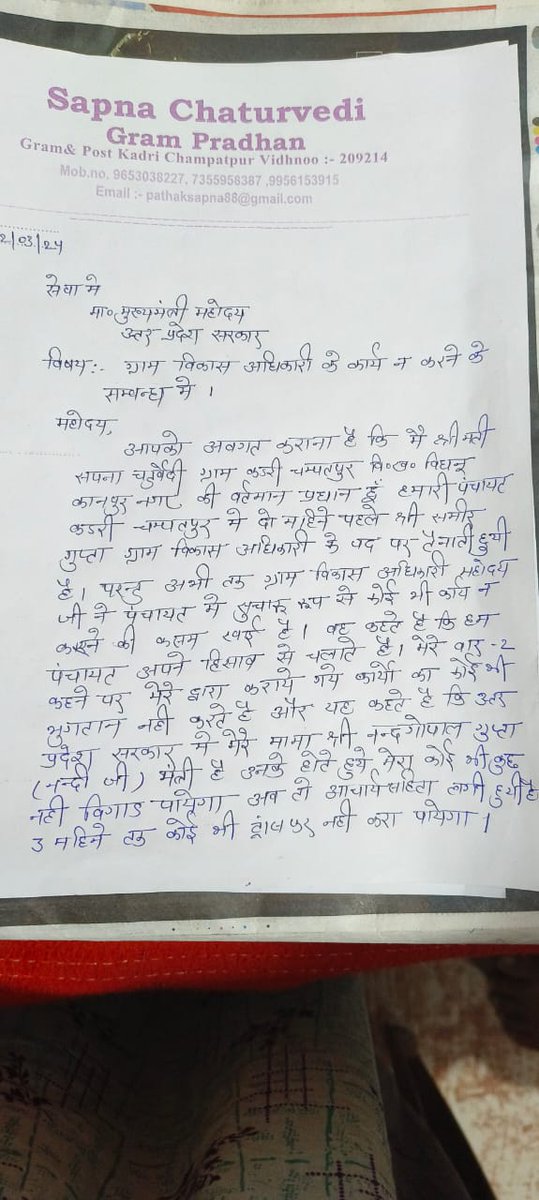 Sapna Chaturvedi
Gram Pradhan
Gram& Post Kadri Champatpur Vidhnoo :- 209214
Mob.no. 9653038227, 7355958387 ,9956153915
Email :- pathaksapna88@gmail.com
2/03/24
सेवा मे
मा० मुख्यमंत्री महोदय
उत्तर प्रदेश सरकार
विषय:- ग्राम विकास अधिकारी के कार्य न करने के
सम्बन्ध मे ।
महोदय,
आपको अवगत कराना है कि मै श्रीमती
सपना चतुर्वेदी ग्राम कडरी चम्पतपुर वि०ख० विधनू
कानपुर नगर की वर्तमान प्रधान हूँ हमारी पंचायत
कडरी चम्पतपुर मे दो महिने पहले श्री समीर
गुप्ता ग्राम विकास अधिकारी के पद पर तैनाती हुयी
है। परन्तु अभी तक ग्राम विकास अधिकारी महोदय
जी ने पंचायत मे सुचारू रूप से कोई भी कार्य न
करने की कसम खाई है । वह कहते है कि हम
पंचायत अपने हिसाब से चलाते है। मेरे बार -2
कहने पर मेरे द्वारा कराये गये कार्यो का कोई भी
भुगतान नही करते है और यह कहते है कि उत्तर
प्रदेश सरकार मे मेरे मामा श्री नन्दगोपाल गुप्ता
(नन्दी जी) मंत्री है उनके होते हुये मेरा कोई भी कुछ
नही विगाड पायेगा अब तो आचार्य संहिता लगी हुयी है
3 महिने तक कोई भी ट्रांसफर नही करा पायेगा ।